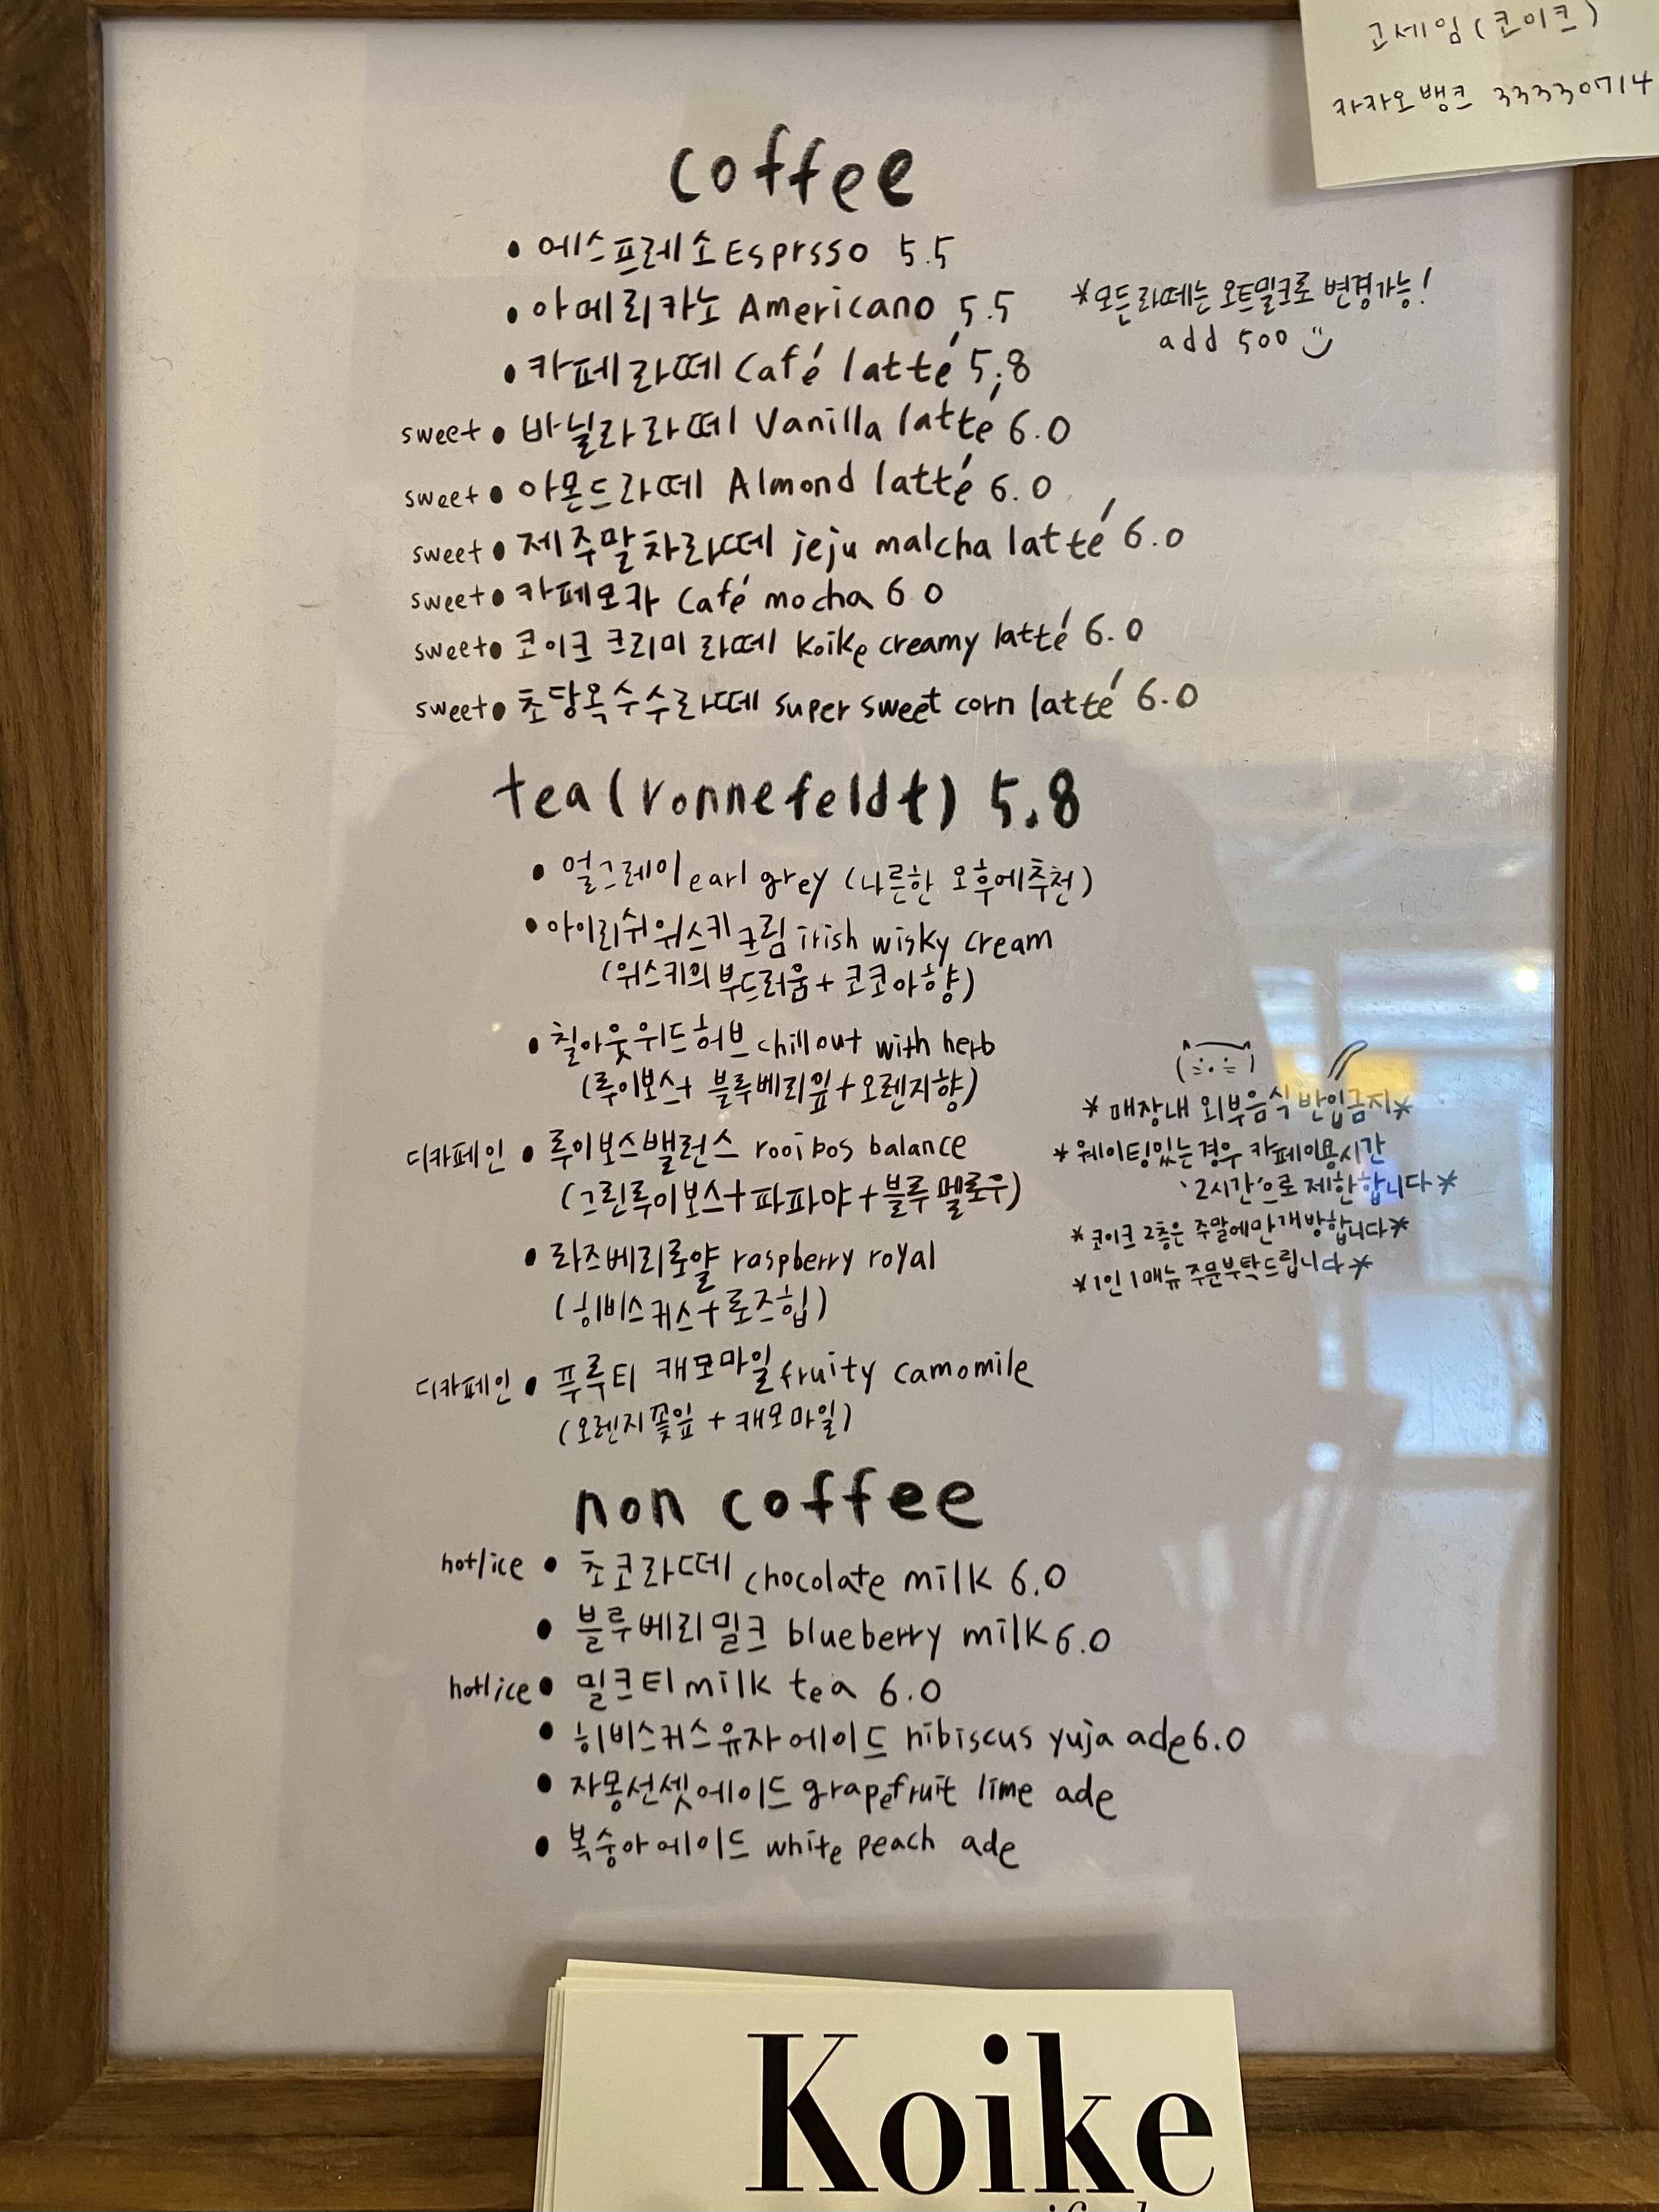 고세임(코이크)
카카오뱅크 33330714
coffee
• 에스프레소 Esprsso 5.5
• 아메리카노 Americano 5.5
*모든라떼는 오트밀크로 변경가능!
add 500
• 카페라떼 Café latté 5.8
sweet • 바닐라라떼 Vanilla latté 6.0
sweet • 아몬드라떼 Almond latté 6.0
sweet • 제주말차라떼 jeju malcha latté 6.0
sweet • 카페모카 Café mocha 6.0
sweet • 코이크 크리미 라떼 Koike creamy latté 6.0
sweet • 초당옥수수라떼 super sweet corn latté 6.0
tea (ronnefeldt) 5.8
• 얼그레이 earl grey (나른한 오후에추천)
• 아이리쉬위스키크림 irish wisky cream
(위스키의 부드러움 + 코코아향)
• 칠아웃위드허브 chill out with herb
(루이보스+ 블루베리잎+오렌지향)
디카페인 • 루이보스밸런스 rooibos balance
(그린루이보스+파파야+블루멜로우)
• 라즈베리로얄 raspberry royal
(히비스커스+로즈힙)
디카페인 • 푸루티 캐모마일 fruity camomile
(오렌지꽃잎 + 캐모마일)
* 매장내 외부음식 반입금지*
* 웨이팅있는경우 카페이용시간
'2시간'으로 제한합니다*
*코이크 2층은 주말에만개방합니다*
*1인 1매뉴 주문부탁드립니다*
non coffee
hot/ice • 초코라떼 chocolate milk 6.0
• 블루베리밀크 blueberry milk 6.0
hot/ice • 밀크티 milk tea 6.0
• 히비스커스유자에이드 hibiscus yuja ade 6.0
• 자몽선셋에이드 grapefruit lime ade
• 복숭아에이드 white peach ade
Koike